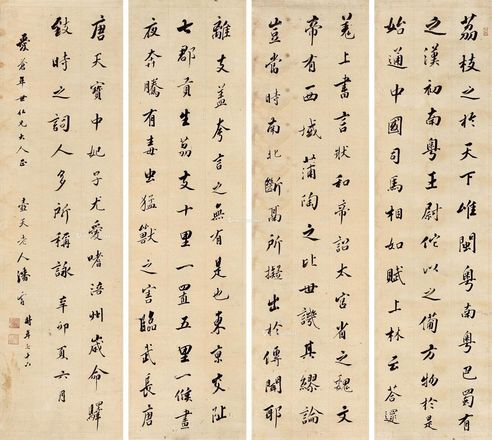 荔枝之於天下唯閩粵南粵巴蜀有
之漢初南粵王尉佗以之備方物於是
始通中國司馬相如賦上林云荅遝
羌上書言狀和帝詔太官省之魏文
帝有西域蒲陶之比世譏其繆論
豈當時南北斷鬲所擬出於傳聞耶
離支蓋夸言之無有是也東京交阯
七郡貢生荔支十里一置五里一候晝
夜奔騰有毒虫猛獸之害臨武長唐
唐天寶中妃子尤愛嗜涪州歲命驛
致時之詞人多所稱詠 辛卯夏六月
愛蒼年世仁兄大人正 壺天老人潘霨 時年七十六